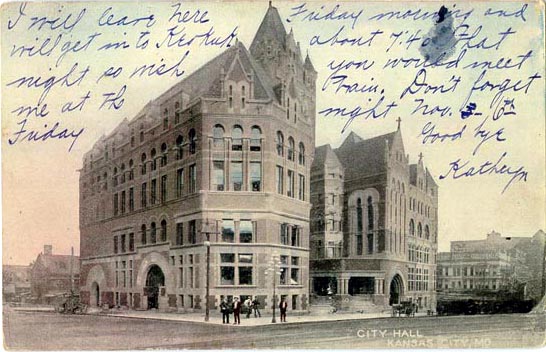 I will leave here
will get in to Keokuk
night so wish
me at the
Friday
Friday morning and
about 7:40 that
you would meet
Train. Don't forget
night Nov. 6th
Good bye
Kathryn
CITY HALL
KANSAS CITY, MO.